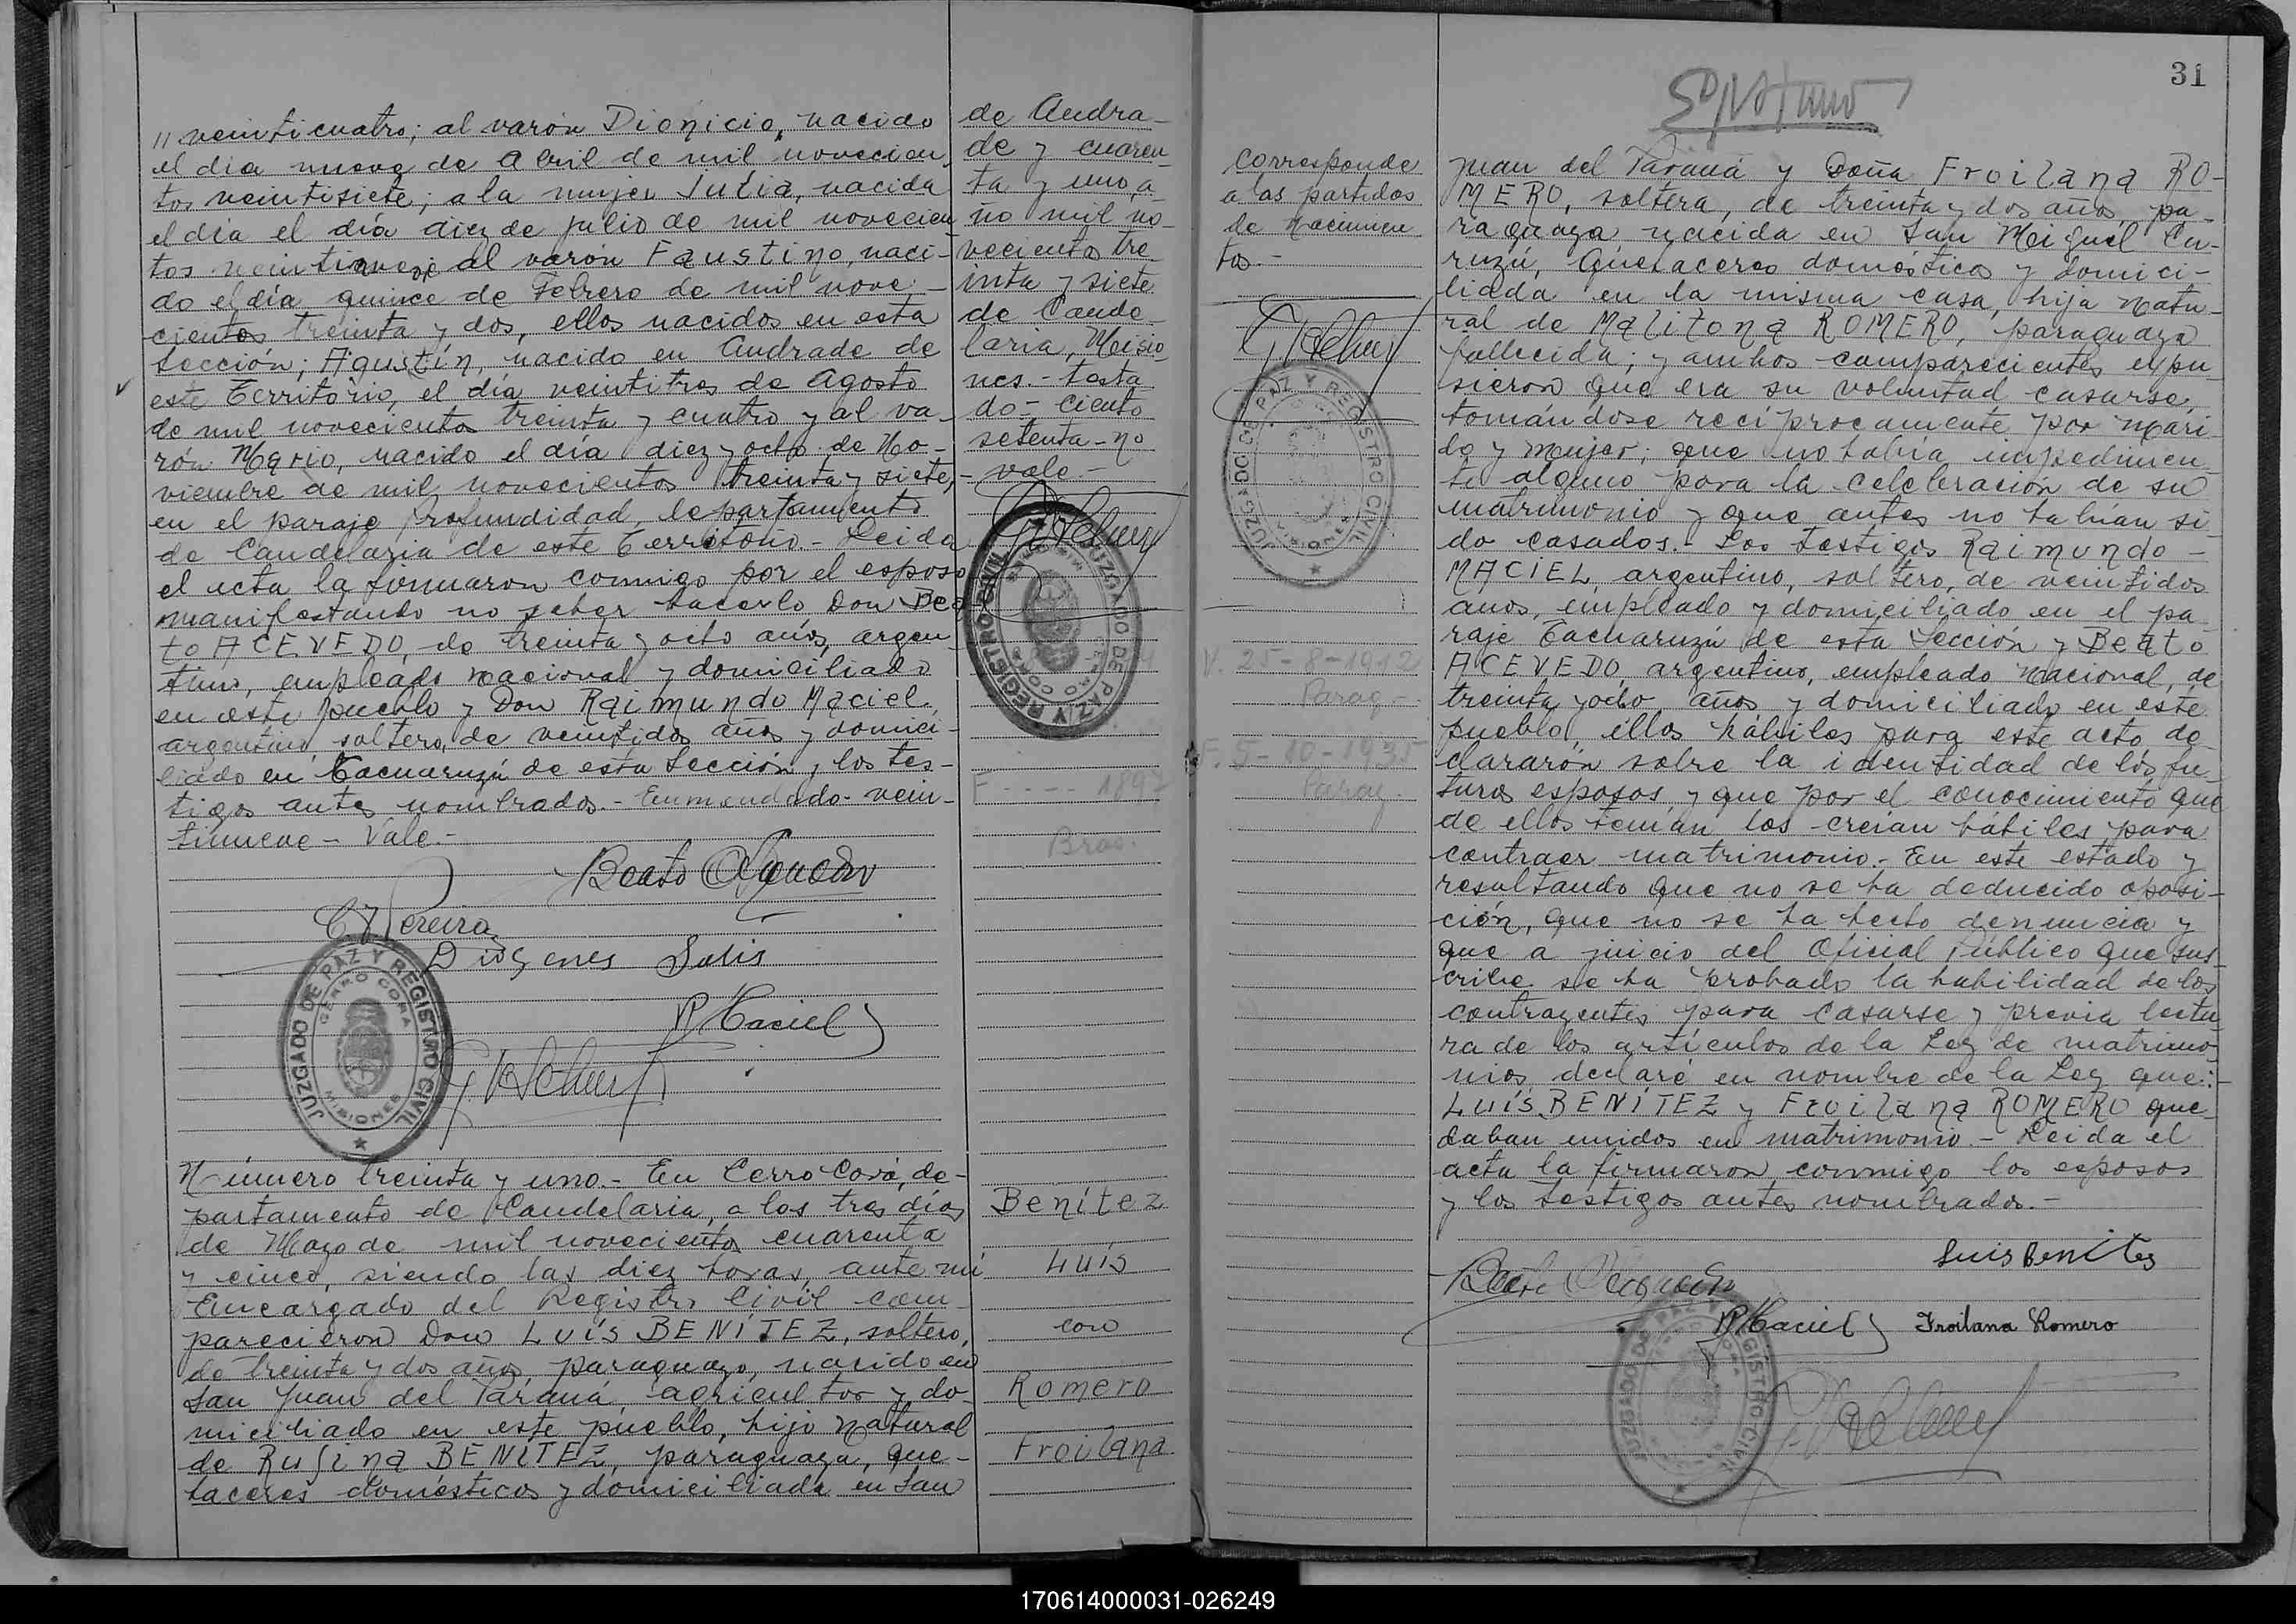 // veinticuatro; al varón Dionicio, nacido
el día nueve de Abril de mil novecien
tos veintisiete; a la mujer Julia, nacida
el día el día diez de julio de mil novecien
tos veintinueve; al varón Faustino, naci-
do el día quince de Febrero de mil nove-
cientos treinta y dos, ellos nacidos en esta
Sección; Agustín, nacido en Andrade de
este Territorio, el día veintitres de Agosto
de mil novecientos treinta y cuatro y al va-
rón Mario, nacido el día diez y ocho de No-
viembre de mil novecientos treinta y siete,
en el paraje Profundidad, departamento
de Candelaria de este Territorio.- Leida
el acta la firmaron conmigo por el esposo
manifestando no saber hacerlo Don Bea
to ACEVEDO, de treinta y ocho años, argen
tino, empleado nacional y domiciliado
en este pueblo y Don Raimundo Maciel,
argentino, soltero, de veintidos años y domici-
liado en Tacuaruzú de esta Sección, los tes-
tigos antes nombrados.- Enmendado- vein-
tinueve- Vale.-
Beato Acevedo
C. J. Pereira
Diógenes Solis
R Maciel
JUZGADO DE PAZ Y REGISTRO CIVIL
CERRO CORA
MISIONES
Número treinta y uno.- En Cerro Corá, de-
partamento de Candelaria, a los tres días
de Mayo de mil novecientos cuarenta
y cinco, siendo las diez horas, ante mí
Encargado del Registro Civil com-
parecieron Don LUÍS BENÍTEZ, soltero,
de treinta y dos años, paraguayo, nacido en
San Juan del Paraná, agricultor y do-
miciliado en este pueblo, hijo natural
de Rufina BENITEZ, paraguaya, que-
haceres domésticos y domiciliada en San
de Andra-
de y cuaren
ta y uno, a-
ño mil no-
vecientos tre
inta y siete
de Cande-
laria, Misio
nes.- testa
do- ciento
setenta- no
- vale.-
JUZGADO DE PAZ Y REGISTRO CIVIL
CERRO CORA
F. ---- 1897
Bras.
Benítez
Luís
con
Romero
Froilana
31
Corresponde
a las partidas
de nacimien
tos.-
JUZGADO DE PAZ Y REGISTRO CIVIL
MISIONES
V. 25-8-1912
Parag-
F. 5-10-1935
Parag.
Juan del Paraná y Doña Froilana RO-
MERO, soltera, de treinta y dos años, pa-
raguaya nacida en San Miguel Cu-
ruzú, Quehaceres domésticos y domici-
liada en la misma casa, hija natu-
ral de Malitona ROMERO, paraguaya
fallecida; y ambos comparecientes expu
sieron que era su voluntad casarse,
tomándose recíprocamente por mari
do y mujer; que no había impedimen
to alguno para la celebración de su
matrimonio y que antes no habían si
do casados.- Los testigos Raimundo-
MACIEL, argentino, soltero, de veintidos
años, empleado y domiciliado en el pa
raje Tacuaruzú de esta Sección y Beato
ACEVEDO, argentino, empleado nacional, de
treinta y ocho años y domiciliado en este
pueblo, ellos hábiles para este acto de-
clararón sobre la identidad de los fu-
turos esposos y que por el conocimiento que
de ellos tenían los creían hábiles para
contraer matrimonio.- En este estado y
resultando que no se ha deducido oposi-
ción, que no se ha hecho denuncia y
que a juicio del Oficial Público que sus-
cribe se ha probado la habilidad de los
contrayentes para casarse y previa lectu
ra de los artículos de la Ley de matrimo-
nios, declaré en nombre de la Ley que:-
LUÍS BENÍTEZ y Froilana ROMERO que-
daban unidos en matrimonio.- Leida el
acta la firmaron conmigo los esposos
y los testigos antes nombrados.-
Luis Benites
Beato Acevedo
R Maciel Froilana Romero
JUZGADO DE PAZ Y REGISTRO CIVIL
170614000031-026249